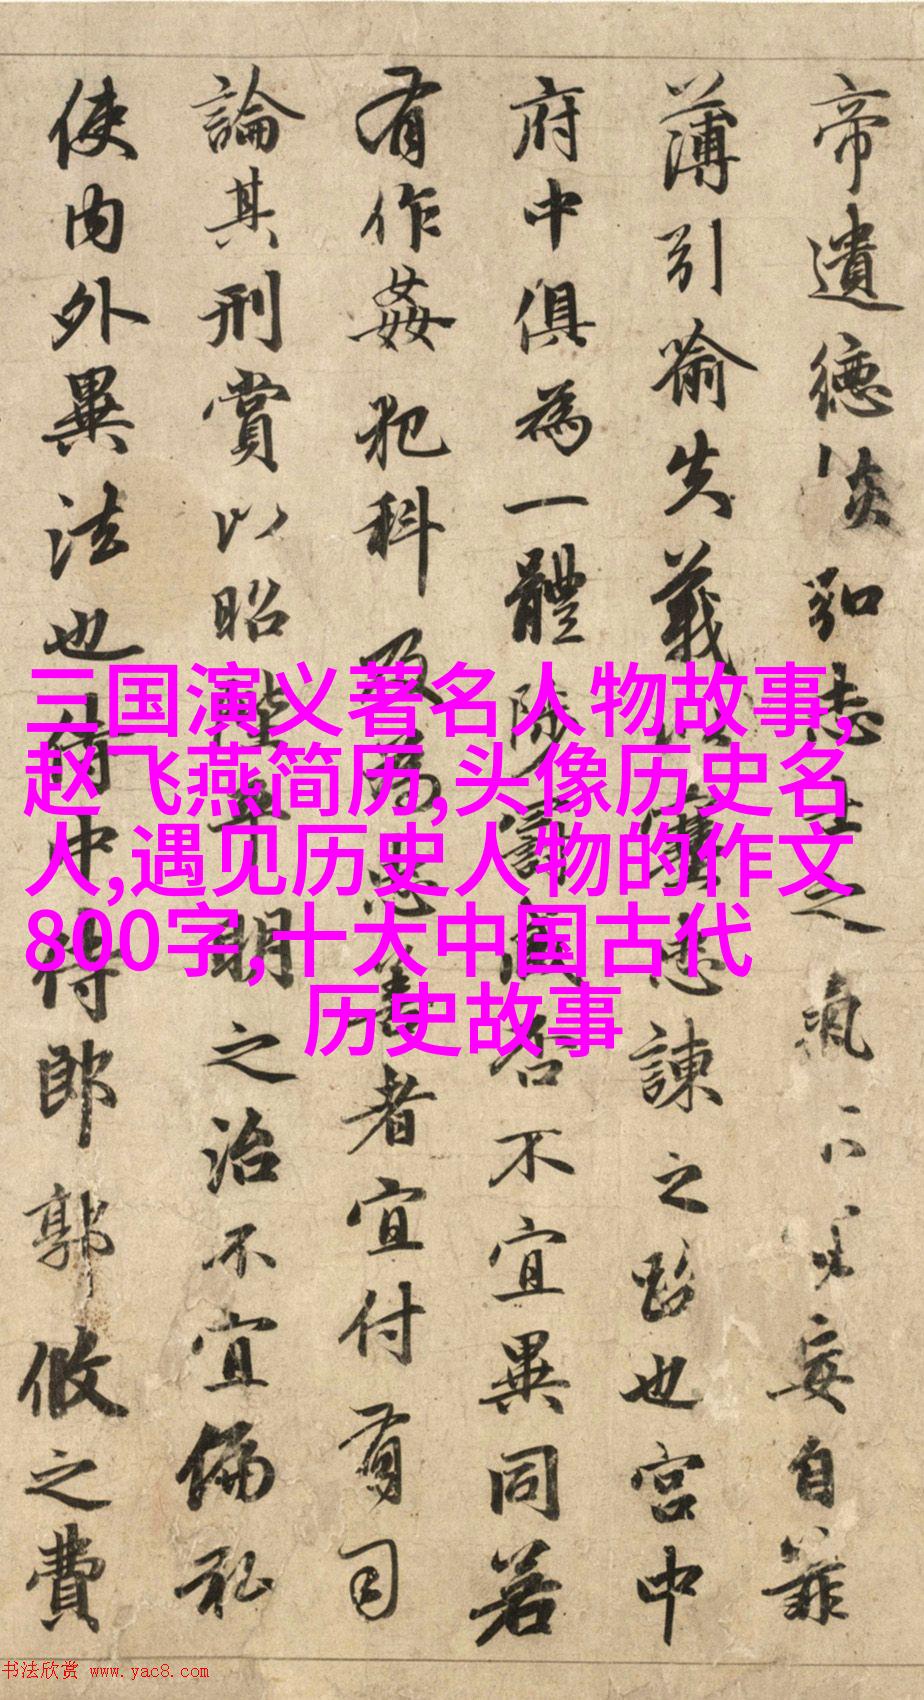 帝遺德恢弘志士之氣不宜妄自菲
薄引喻失義以塞忠諫之路也宮中
府中俱為一體陟罰臧否不宜異同若
有作姦犯科及為忠善者宜付有司
論其刑賞以昭陛平明之治不宜偏私
使內外異法也侍中侍郎郭攸之費
三国演义著名人物故事,
赵飞燕简历,头像历史名
人,遇见历史人物的作文
800字,十大中国古代
历史故事
书法欣赏 www.yac8.com